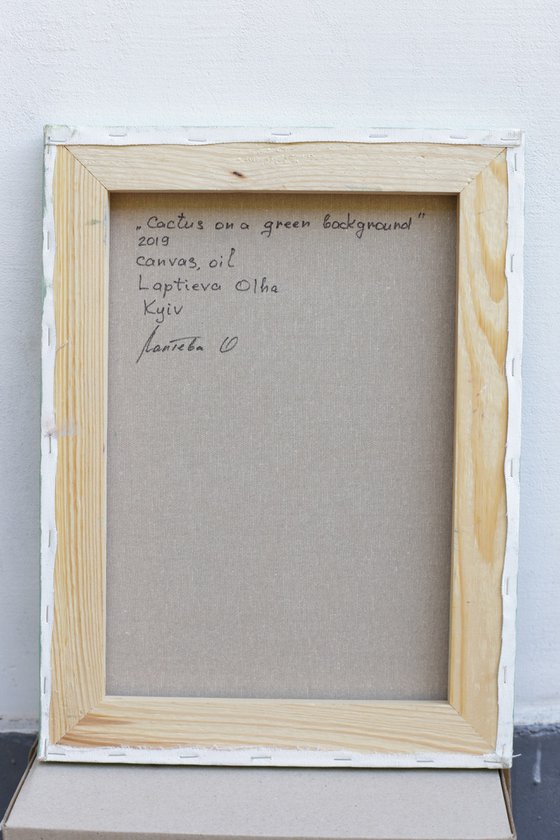 „Cactus on a green background"
2019
canvas, oil
Laptieva Olha
Kyiv
Лаптева О